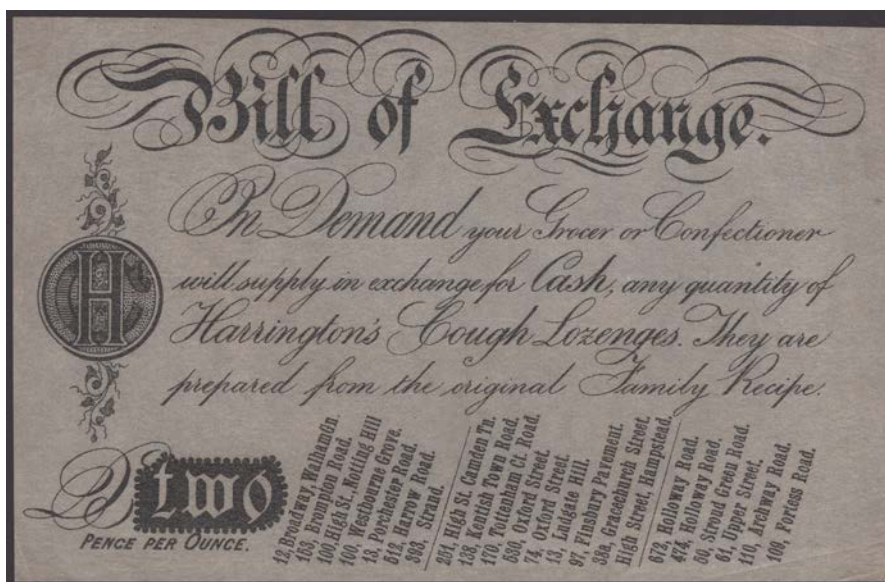 Bill of Exchange.
On Demand your Grocer or Confectioner
will supply in exchange for Cash, any quantity of
Harrington's Cough Lozenges. They are
prepared from the original Family Recipe.
H
two
PENCE PER OUNCE.
12, Broadway, Walham Gn.
153, Brompton Road.
100, High St., Notting Hill
100, Westbourne Grove.
13, Porchester Road.
512, Harrow Road.
393, Strand.
251, High St. Camden Tn.
158, Kentish Town Road.
170, Tottenham Ct. Road.
530, Oxford Street.
74, Oxford Street.
13, Ludgate Hill.
97, Finsbury Pavement.
38a, Gracechurch Street.
High Street, Hampstead.
672, Holloway Road.
474, Holloway Road.
50, Stroud Green Road.
61, Upper Street.
110, Archway Road.
109, Fortess Road.